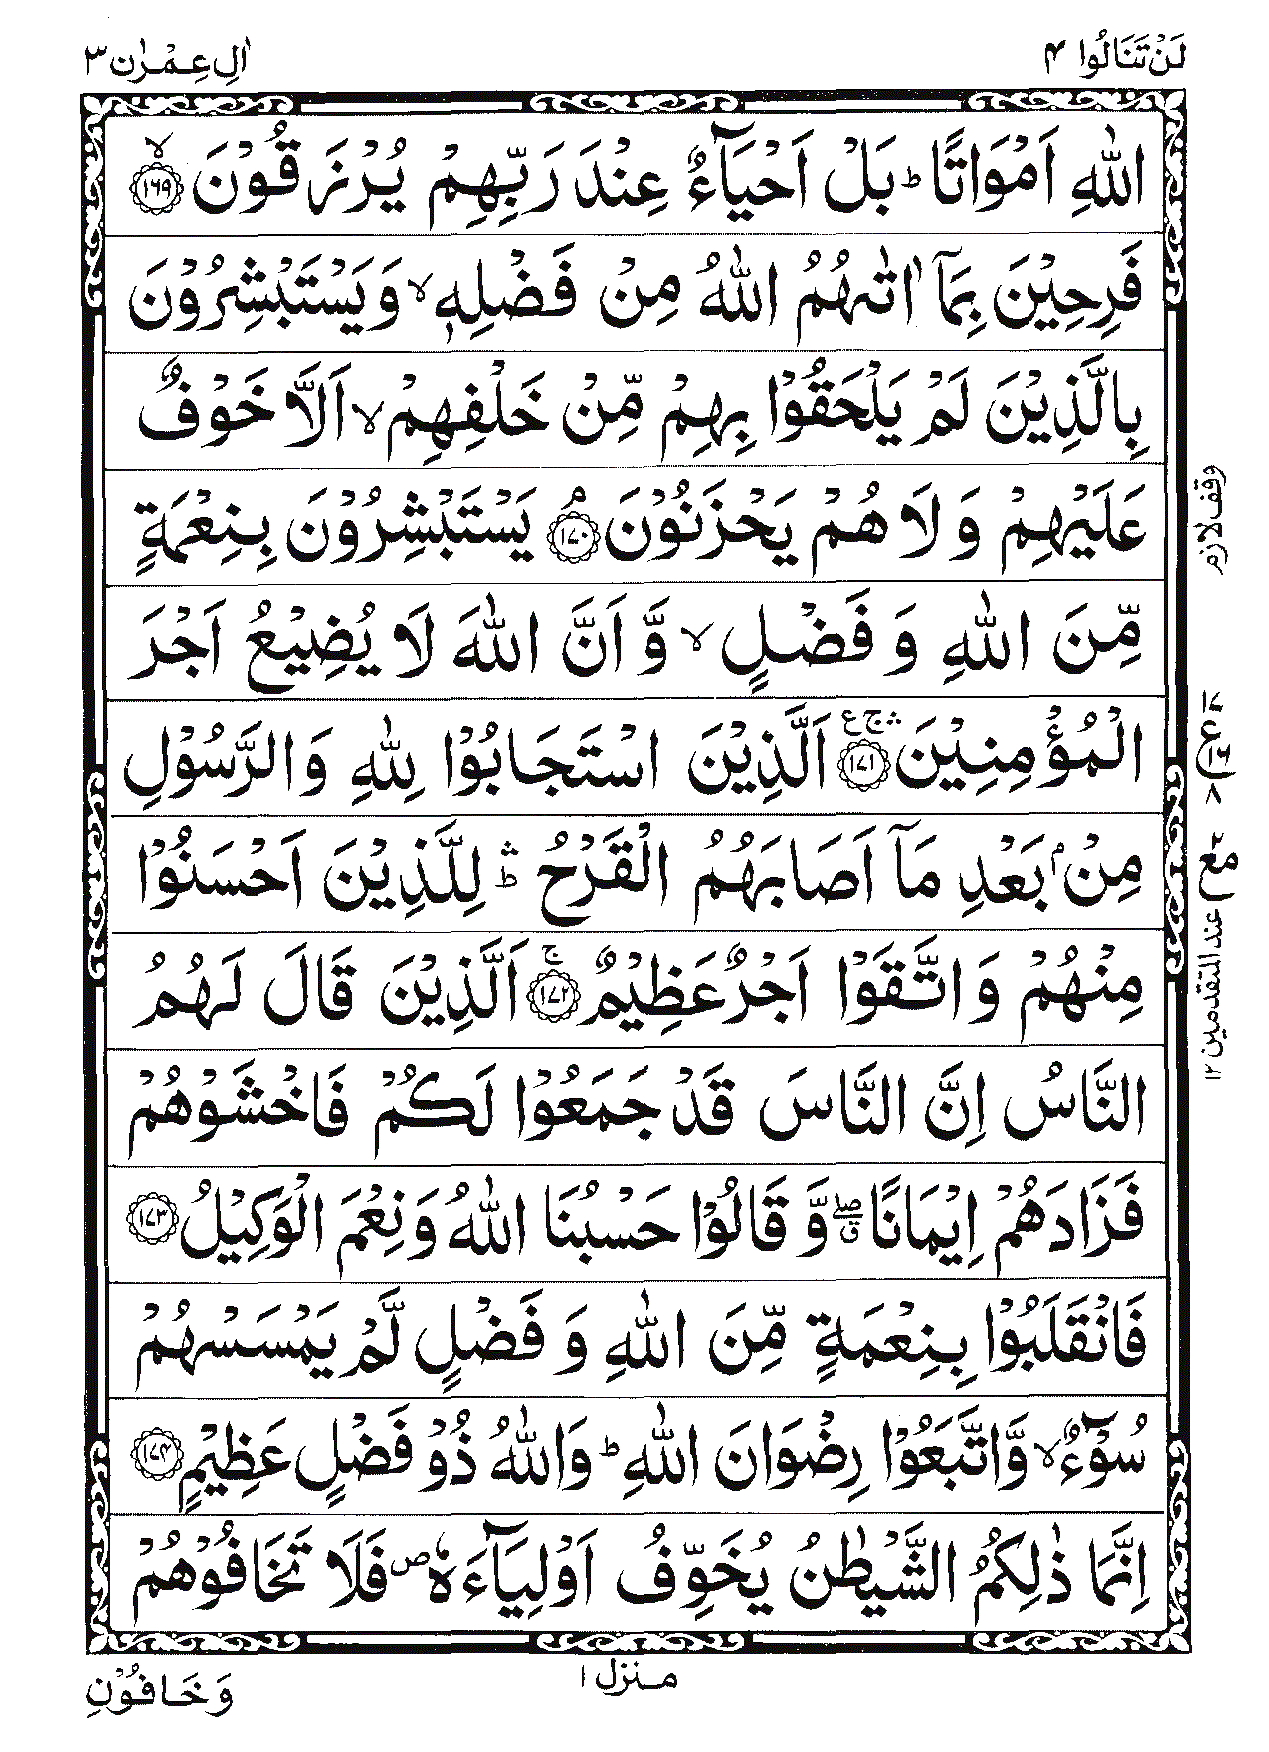 لَنْ تَنَالُوا ۴
اٰلِ عِمْرٰن ۳
اللّٰهِ اَمْوَاتًا ؕ بَلْ اَحْيَآءٌ عِنْدَ رَبِّهِمْ يُرْزَقُوْنَ ۙ‏﴿۱۶۹﴾
فَرِحِيْنَ بِمَاۤ اٰتٰٮهُمُ اللّٰهُ مِنْ فَضْلِهٖ ۙ وَيَسْتَبْشِرُوْنَ
بِالَّذِيْنَ لَمْ يَلْحَقُوْا بِهِمْ مِّنْ خَلْفِهِمْ ۙ اَلَّا خَوْفٌ
عَلَيْهِمْ وَ لَا هُمْ يَحْزَنُوْنَ ۘ‏﴿۱۷۰﴾ يَسْتَبْشِرُوْنَ بِنِعْمَةٍ
مِّنَ اللّٰهِ وَ فَضْلٍ ۙ وَّ اَنَّ اللّٰهَ لَا يُضِيْعُ اَجْرَ
الْمُؤْمِنِيْنَ ۛۚ ع ﴿۱۷۱﴾ اَلَّذِيْنَ اسْتَجَابُوْا لِلّٰهِ وَالرَّسُوْلِ
مِنْۢ بَعْدِ مَاۤ اَصَابَهُمُ الْقَرْحُ ۛؕ لِلَّذِيْنَ اَحْسَنُوْا
مِنْهُمْ وَاتَّقَوْا اَجْرٌ عَظِيْمٌ ۚ‏﴿۱۷۲﴾ اَلَّذِيْنَ قَالَ لَهُمُ
النَّاسُ اِنَّ النَّاسَ قَدْ جَمَعُوْا لَكُمْ فَاخْشَوْهُمْ
فَزَادَهُمْ اِيْمَانًا ۖق وَّ قَالُوْا حَسْبُنَا اللّٰهُ وَنِعْمَ الْوَكِيْلُ ﴿۱۷۳﴾
فَانْقَلَبُوْا بِنِعْمَةٍ مِّنَ اللّٰهِ وَ فَضْلٍ لَّمْ يَمْسَسْهُمْ
سُوْٓءٌ ۙ وَّاتَّبَعُوْا رِضْوَانَ اللّٰهِ ؕ وَاللّٰهُ ذُوْ فَضْلٍ عَظِيْمٍ ﴿۱۷۴﴾
اِنَّمَا ذٰلِكُمُ الشَّيْطٰنُ يُخَوِّفُ اَوْلِيَآءَهٗ ص فَلَا تَخَافُوْهُمْ
وقف لازم
۱۷
ع
۱۶
۸
مع ۲
عند المتقدمين ۱۲
منزل ۱
وَخَافُوْنِ